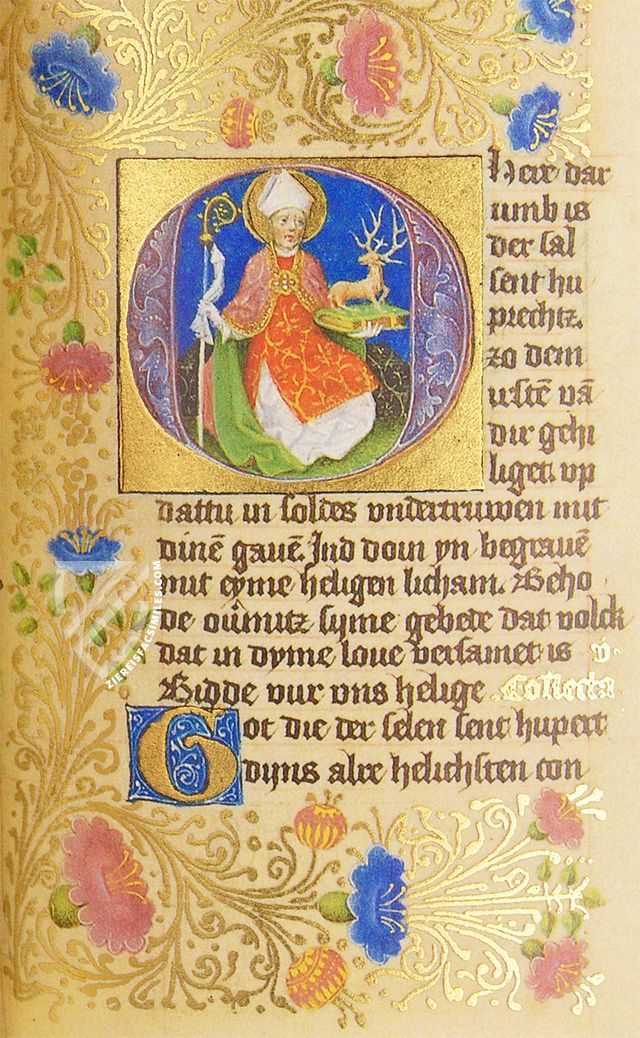 Here dar
umb is
der sal
sent hu
prechtz.
zo dem
ustē vā
dir gehi
liget. up
dattu in soldes undertruwen mit
dinē gauē. Ind doin yn begrauē
mit eyme heligen licham. Beho
de oůmitz syme gebede dat volck
dat in dyme loue versamet is v.
Bidde vur uns helige Collecta
Got die der selen sent hupert
dijns alre helichsten con
ZIEREISFACSIMILES.COM